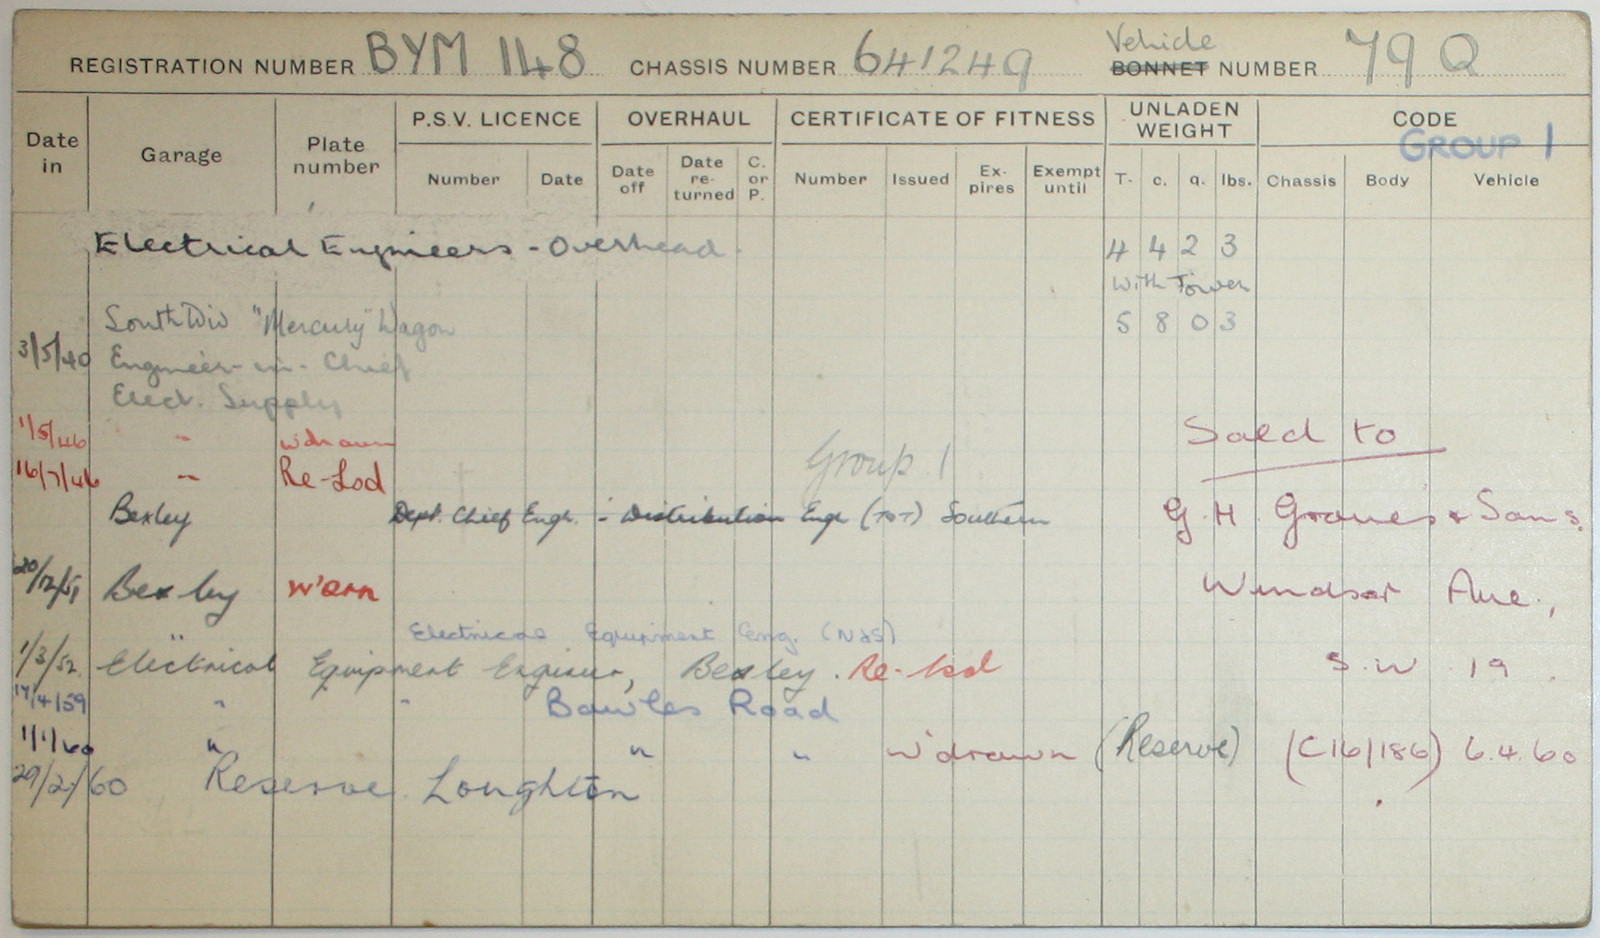 REGISTRATION NUMBER BYM 148 CHASSIS NUMBER 641249 Vehicle BONNET NUMBER 79 Q
Date in Garage Plate number P.S.V. LICENCE OVERHAUL CERTIFICATE OF FITNESS UNLADEN WEIGHT CODE
GROUP 1
Number Date Date off Date re-turned C. or P. Number Issued Ex-pires Exempt until T. c. q. lbs. Chassis Body Vehicle
Electrical Engineers - Overhead. 4 4 2 3
With Tower
South Div "Mercury" Wagon 5 8 0 3
3/5/40 Engineer-in-Chief
Elect. Supply
1/5/46 " w'drawn Sold to
16/7/46 " Re-Lsd Group 1
Bexley Dept. Chief Engr. - Distribution Engr (TOT) Southern G.H. Groves & Sons.
20/12/51 Bexley w'drn Windsor Ave.,
Electrical Equipment Eng. (N&S)
1/3/52 Electrical Equipment Engineer, Bexley. Re-lsd S.W. 19.
17/4/59 " " Bowles Road
1/1/60 " " " w'drawn (Reserve) (C16/186) 6.4.60
29/2/60 Reserve Loughton